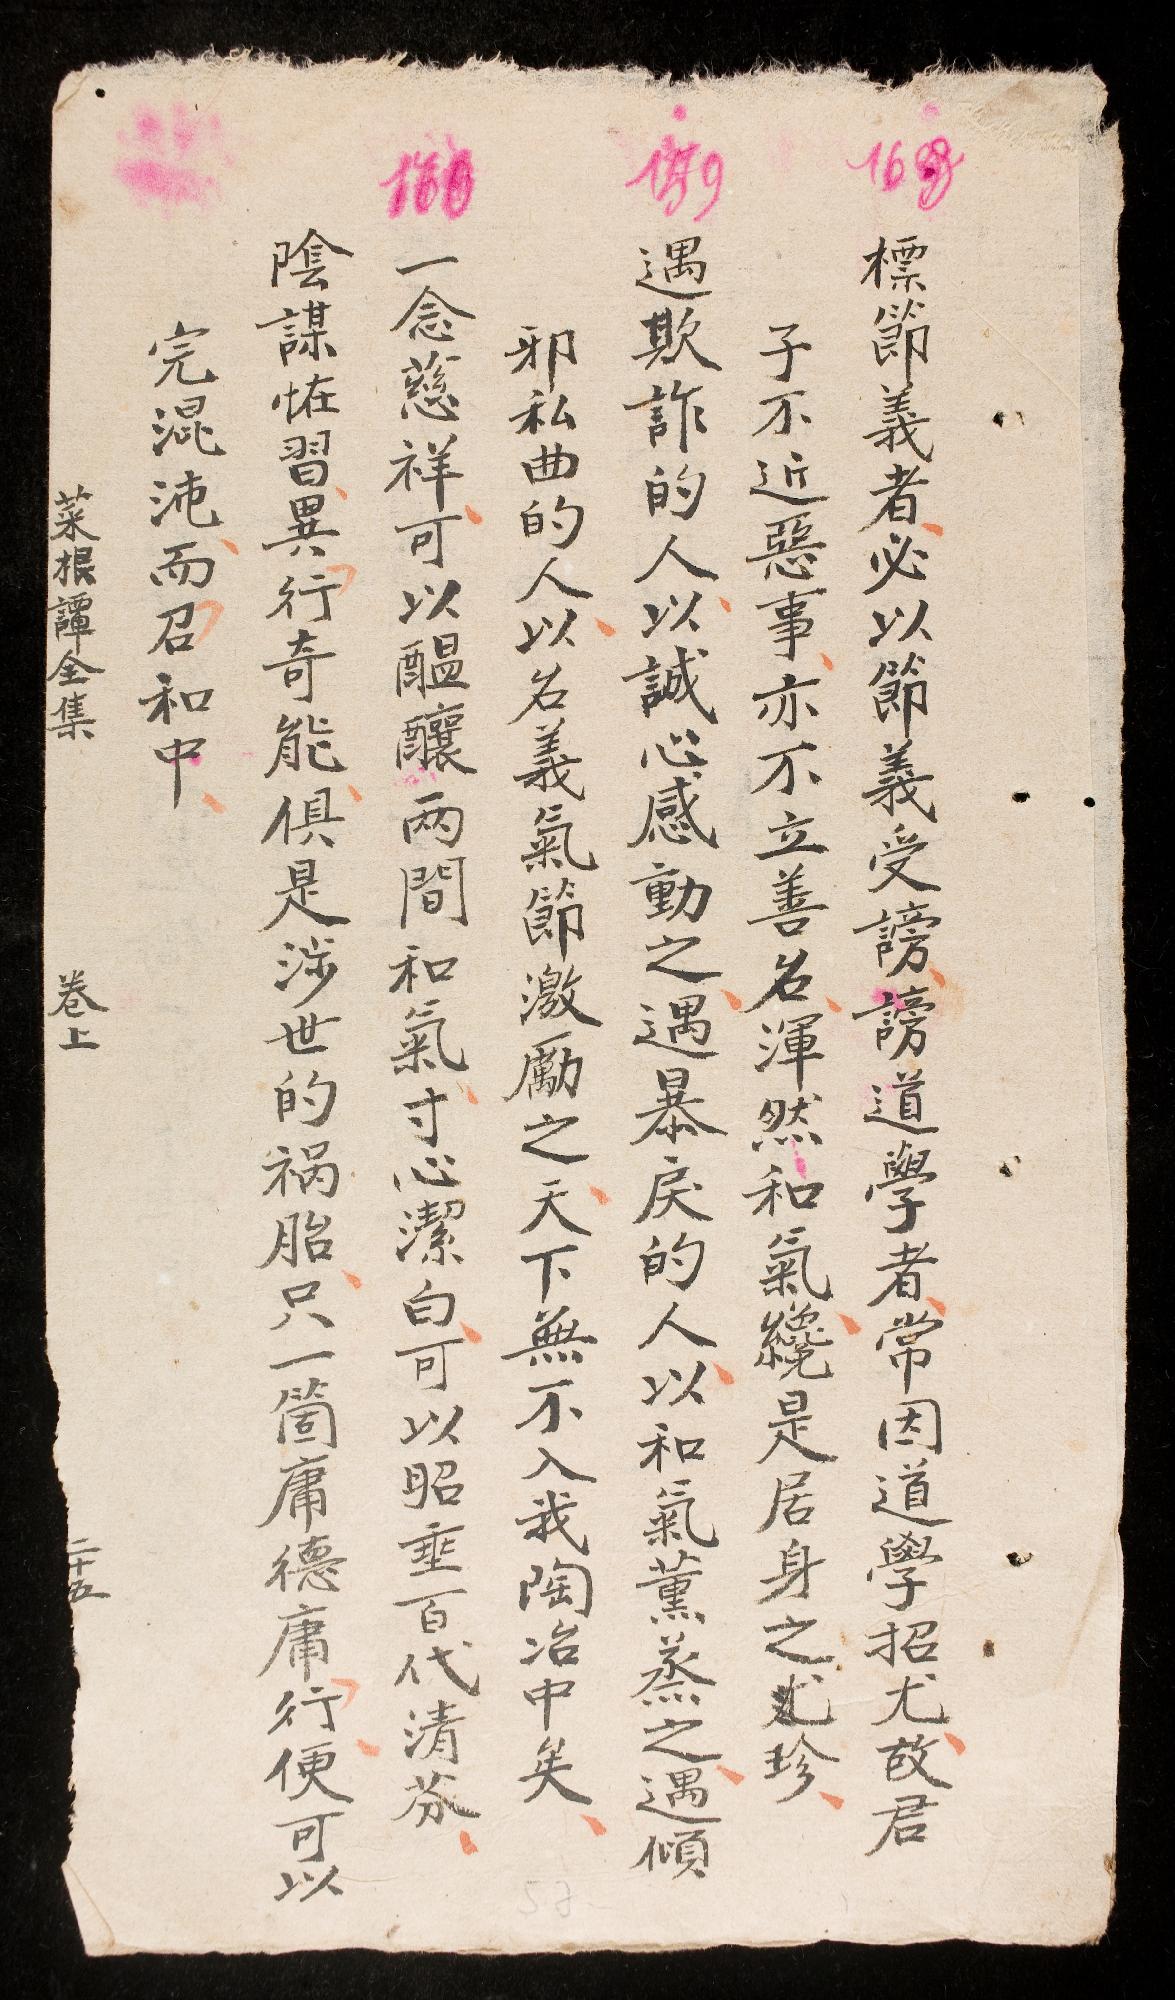 標節義者必以節義受謗謗道學者常因道學招尤故君
子不近惡事亦不立善名渾然和氣纔是居身之珍
遇欺詐的人以誠心感動之遇暴戾的人以和氣薰蒸之遇傾
邪私曲的人以名義氣節激勵之天下無不入我陶冶中矣
一念慈祥可以醞釀兩間和氣寸心潔白可以昭垂百代清芬
陰謀恠習異行奇能俱是涉世的祸胎只一箇庸德庸行便可以
完混沌而召和中
菜根譚全集
卷上
二十五